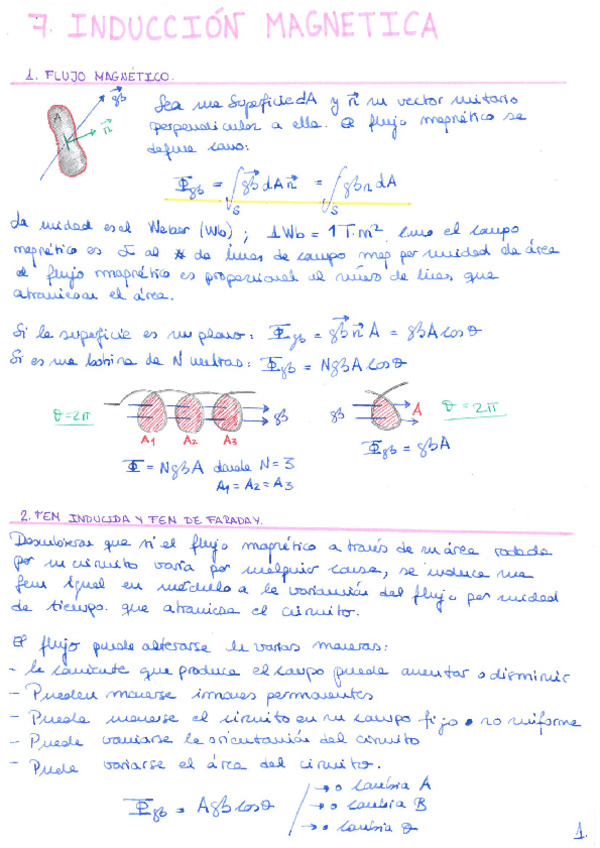 7. INDUCCIÓN MAGNETICA
1. FLUJO MAGNÉTICO.
Sea una superficie dA y n⃗ un vector unitario
perpendicular a ella. El flujo magnético se
define como:
A B⃗ n⃗
Φ_B = ∫_S B⃗ dA n⃗ = ∫_S B n dA
La unidad es el Weber (Wb); 1Wb = 1T·m². Como el campo
magnético es I al # de líneas de campo mag por unidad de área
el flujo magnético es proporcional al número de líneas que
atraviesan el área.
Si la superficie es un plano: Φ_B = B⃗ n⃗ A = BA cos θ
Si es una bobina de N vueltas: Φ_B = NBA cos θ
θ = 2π B B A θ = 2π
A₁ A₂ A₃
Φ_B = BA
Φ = NBA donde N = 3
A₁ = A₂ = A₃
2. FEM INDUCIDA Y FEM DE FARADAY.
Descubrieron que si el flujo magnético a través de un área rodeada
por un circuito varía por cualquier causa, se induce una
fem igual en módulo a la variación del flujo por unidad
de tiempo que atraviesa el circuito.
El flujo puede alterarse de varias maneras:
- la corriente que produce el campo puede aumentar o disminuir
- Pueden moverse imanes permanentes
- Puede moverse el circuito en un campo fijo o no uniforme
- Puede variarse la orientación del circuito
- Puede variarse el área del circuito.
Φ_B = AB cos θ
→ o cambia A
→ o cambia B
→ o cambia θ
1.